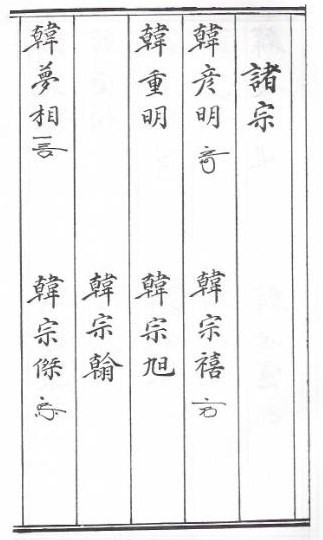 諸宗
韓彦明
韓宗禧
韓重明
韓宗旭
韓宗翰
韓夢相
韓宗傑